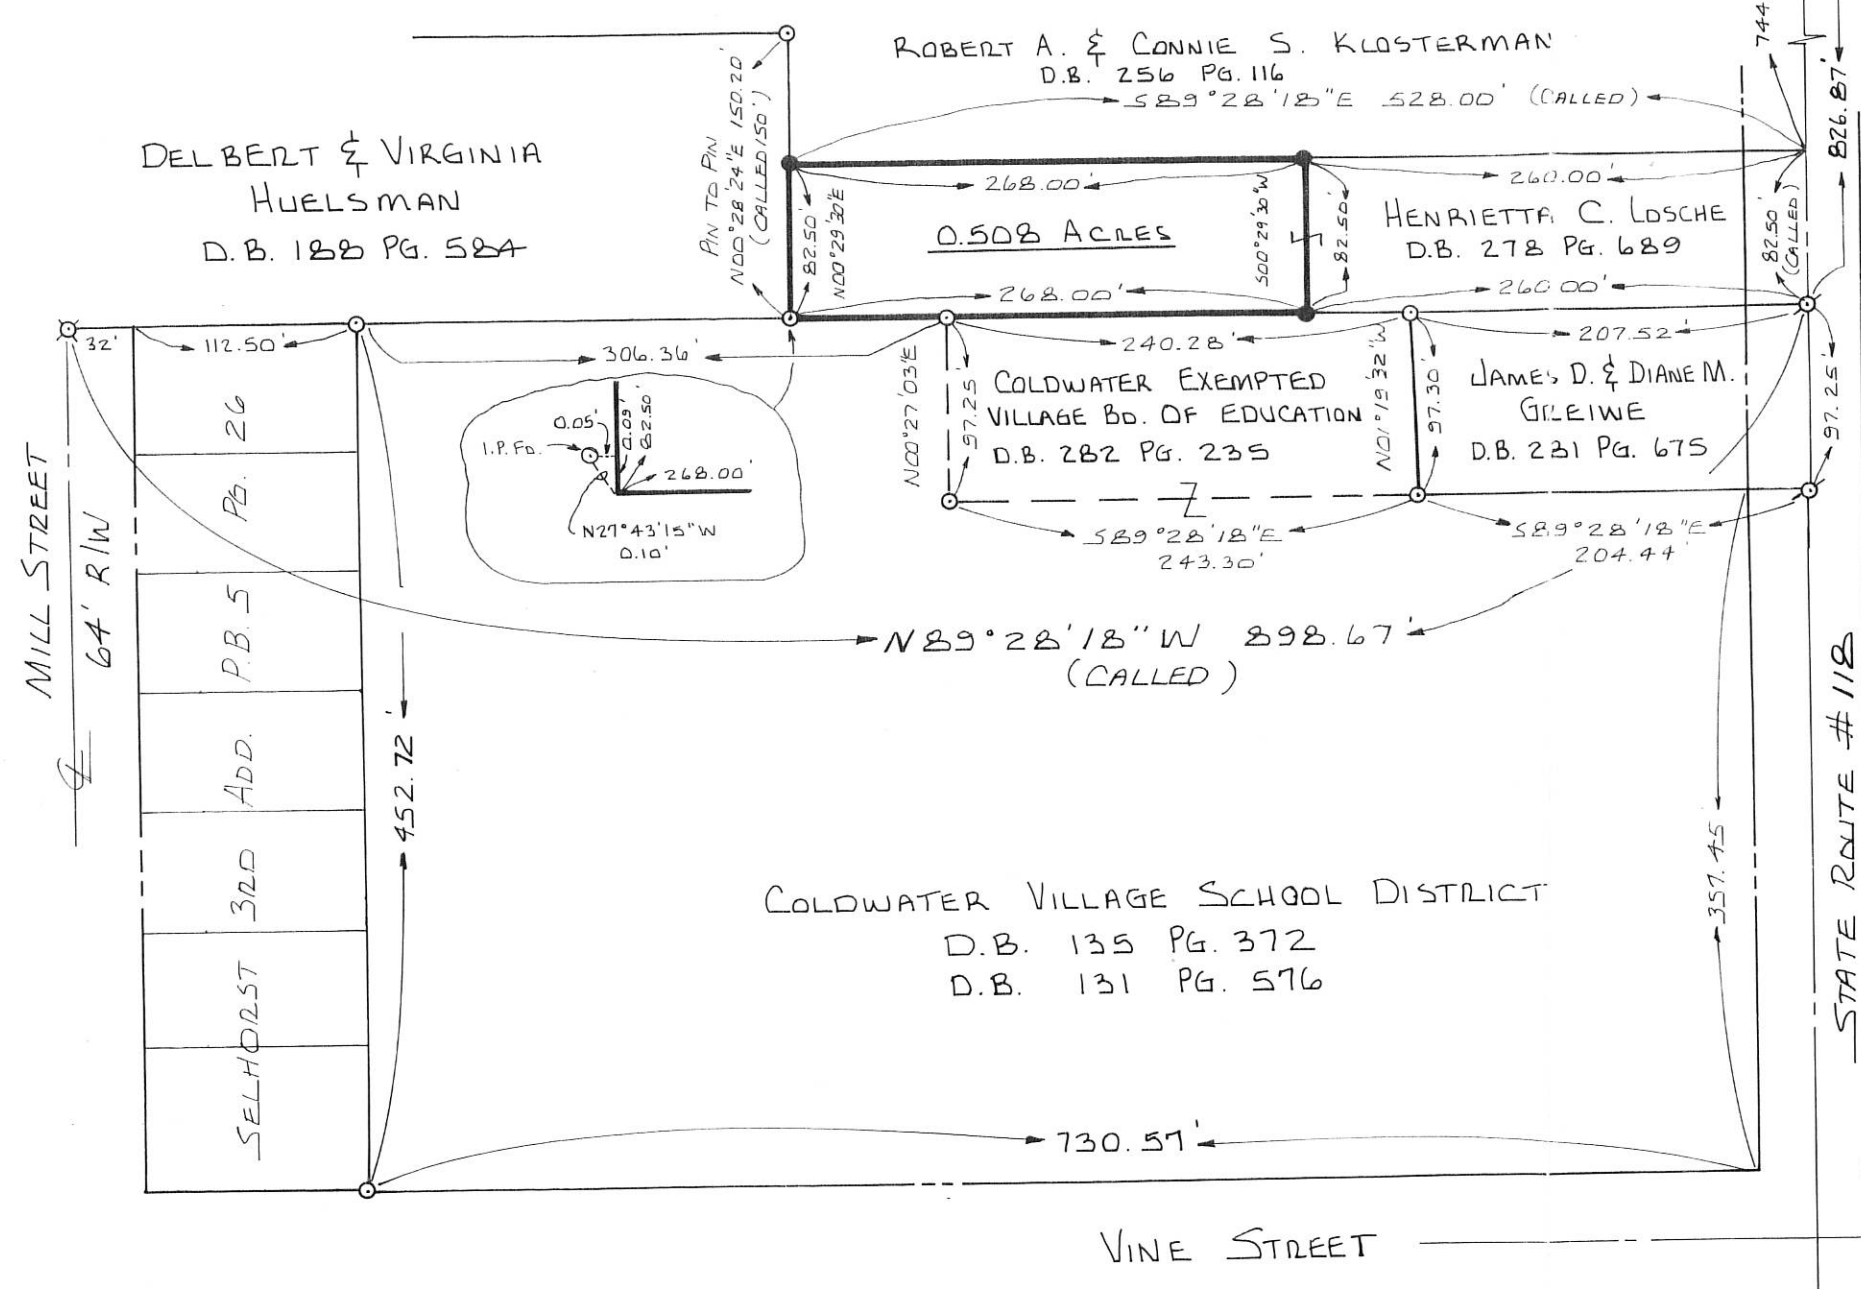 ROBERT A. & CONNIE S. KLOSTERMAN
D.B. 256 PG. 116
S89°28'18"E 528.00' (CALLED)
744
826.87'
DELBERT & VIRGINIA
HUELSMAN
D.B. 188 PG. 584
PIN TO PIN
N00°28'24"E 150.20'
(CALLED 150')
82.50'
N00°29'30"E
268.00'
0.508 ACRES
268.00'
S00°29'30"W
82.50'
260.00'
HENRIETTA C. LOSCHE
D.B. 278 PG. 689
260.00'
82.50'
(CALLED)
32'
112.50'
306.36'
240.28'
207.52'
N00°27'03"E
97.25'
COLDWATER EXEMPTED
VILLAGE BD. OF EDUCATION
D.B. 282 PG. 235
N01°19'32"W
97.30'
JAMES D. & DIANE M.
GREIWE
D.B. 231 PG. 675
97.25'
0.05'
0.09'
82.50'
I.P. FD.
268.00'
N27°43'15"W
0.10'
S89°28'18"E
243.30'
S89°28'18"E
204.44'
N89°28'18"W 898.67'
(CALLED)
MILL STREET
64' R/W
℄
SELHORST 3RD ADD. P.B. 5 PG. 26
452.72'
357.45
STATE ROUTE #118
COLDWATER VILLAGE SCHOOL DISTRICT
D.B. 135 PG. 372
D.B. 131 PG. 576
730.57'
VINE STREET